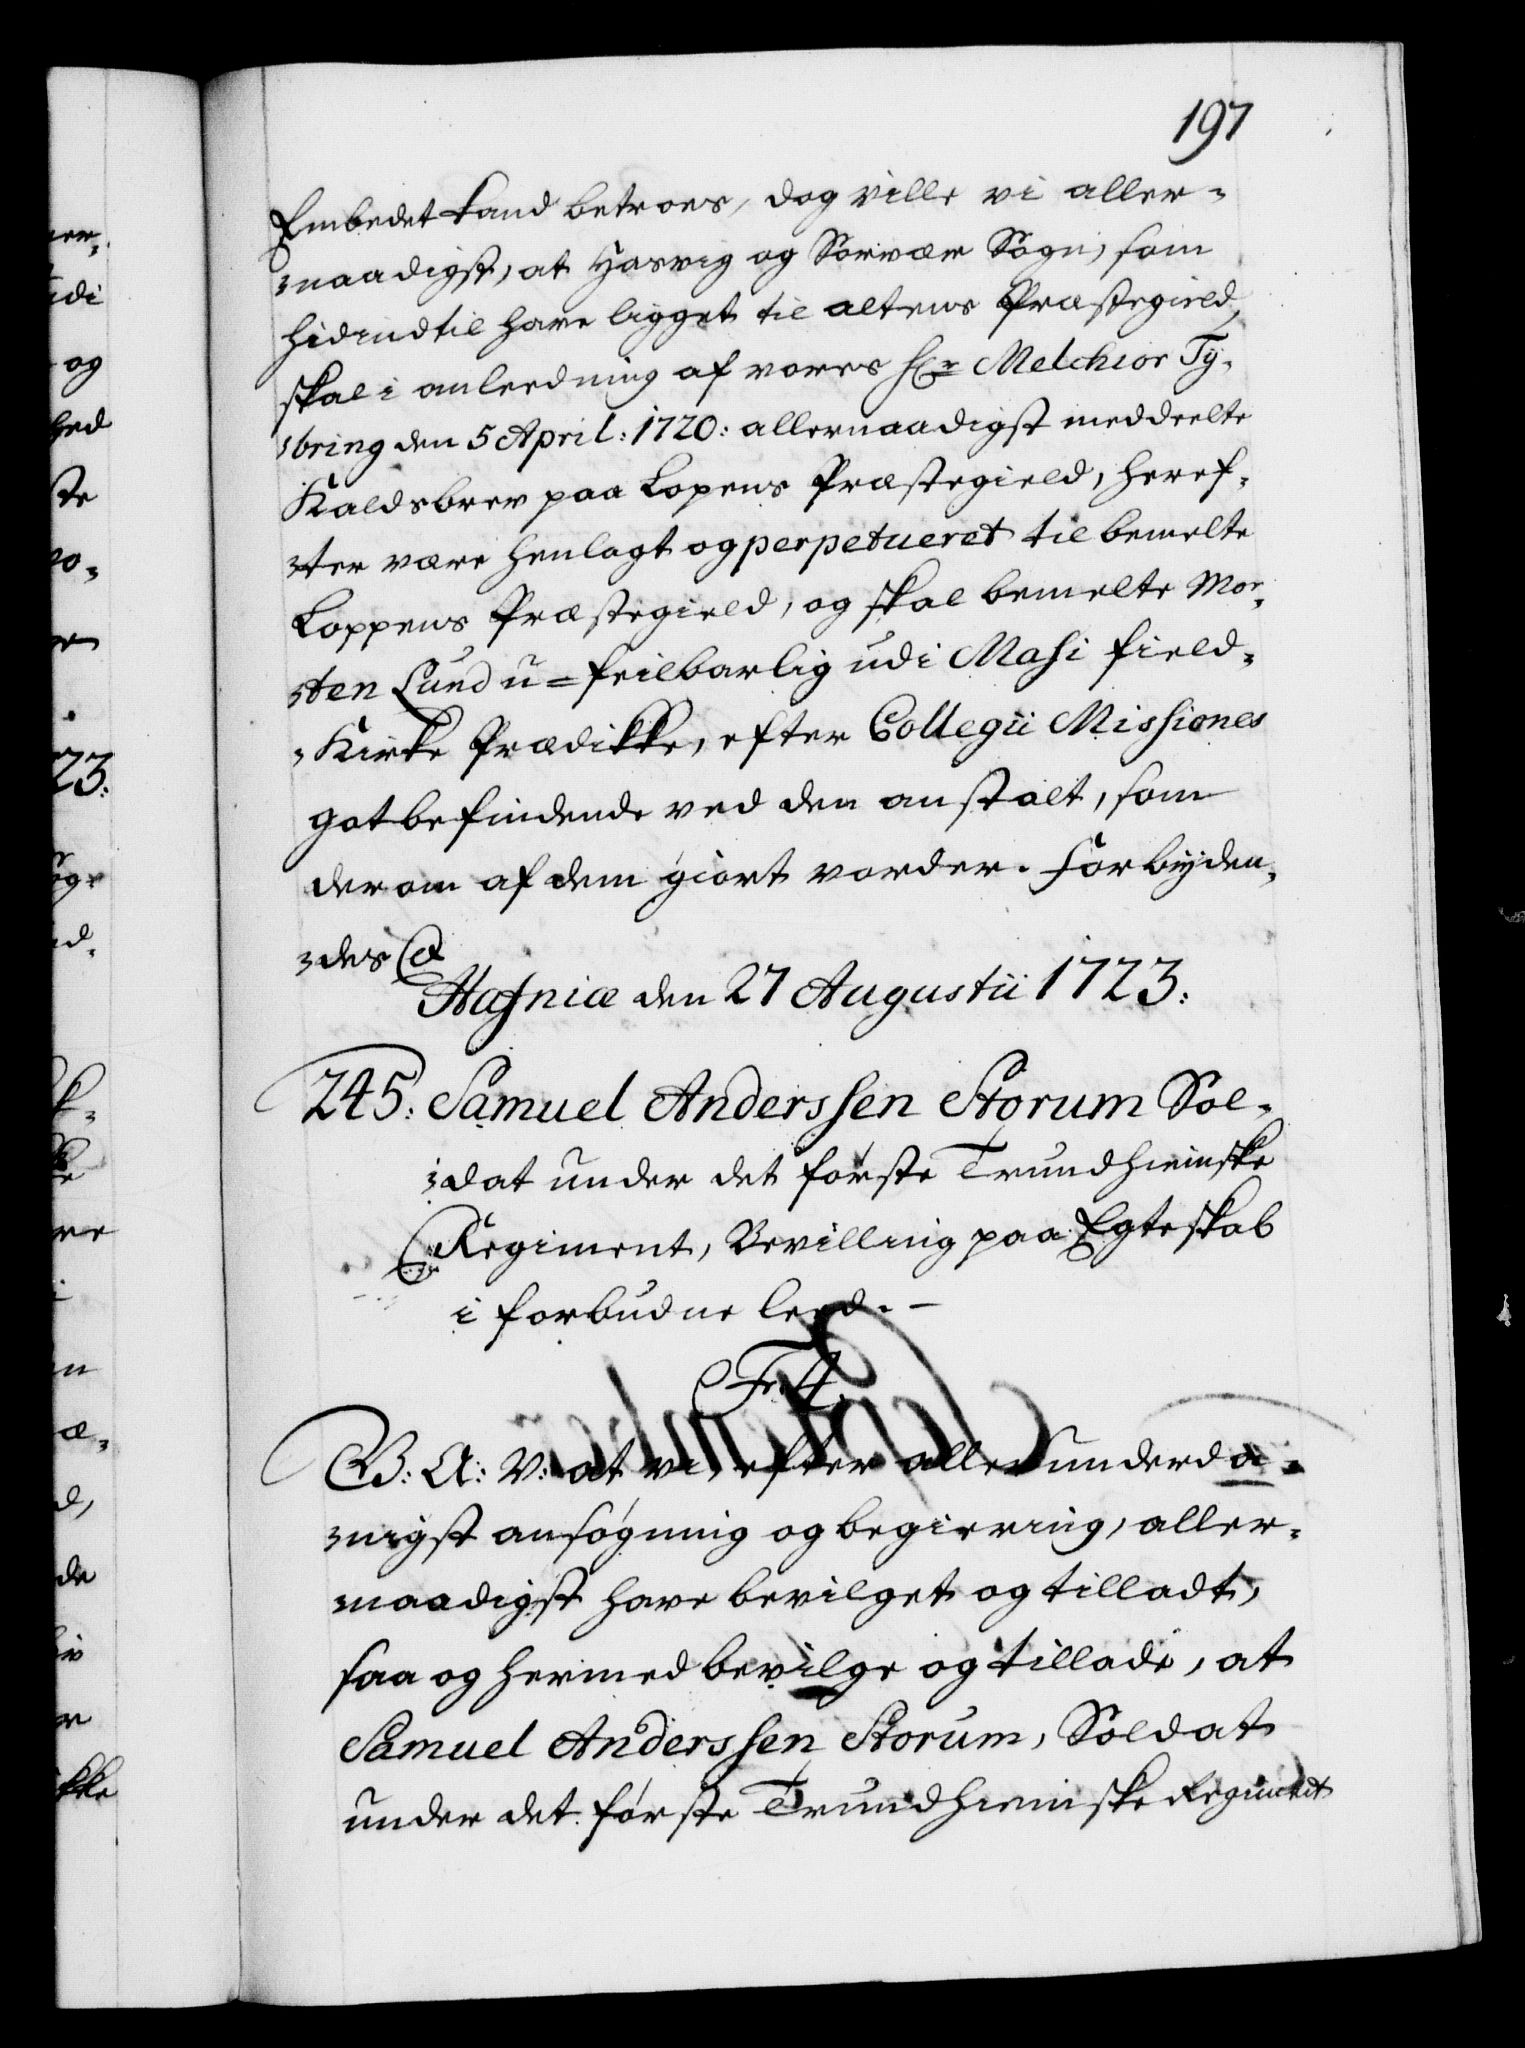 197
Embedet kand betroes, dog ville vi aller-
naadigst, at Hasvig og Sørvær Sogn, som
hidindtil have ligget til altens Præstegield,
skal i anleedning af vores Hr Melchior Ty-
bring den 5 April: 1720: allernaadigst meddeelte
Kaldsbrev paa Lopens Præstegield, heref-
ter være henlagt og perpetueret til bemelte
Loppens Præstegield, og skal bemelte Mor-
ten Lund u=feilbarlig udi Masi field-
Kirke Prædikke, efter Collegii Missiones
gotbefindende ved den anstalt, som
derom af dem giort vorder. Forbyden-
des &
Hafniæ den 27 Augustii 1723:
245: Samuel Anderssen Storum Sol-
dat under det første Trundhiemske
Regiment, Bevilling paa Egteskab
i forbudne leed. —
Fr: 4.
G: A: V: at vi, efter allerunderdа-
nigst ansøgning og begiering, aller-
naadigst have bevilget og tilladt,
saa og hermed bevilge og tillade, at
Samuel Anderssen Storum, Soldat
under det første Trundhiemske Regiment